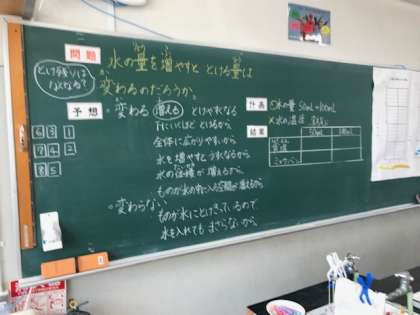 問題
水の量を増やすと とける量は
変わるのだろうか。
とけ残りは
なくなる?
予想
変わる 増える とけやすくなる
全体に広がりやすいから
水を増やすとうすくなるから
水の体積が増えるから
ものが水の中に入る空間が増えるから
変わらない
ものが水にとけきっているので
水を入れても まざらないから。
6 3 1
7 4 2
8 5
計画
水の量 50mL→100mL
×水の温度 変えない
結果
50mL 100mL
食塩
ミョウバン